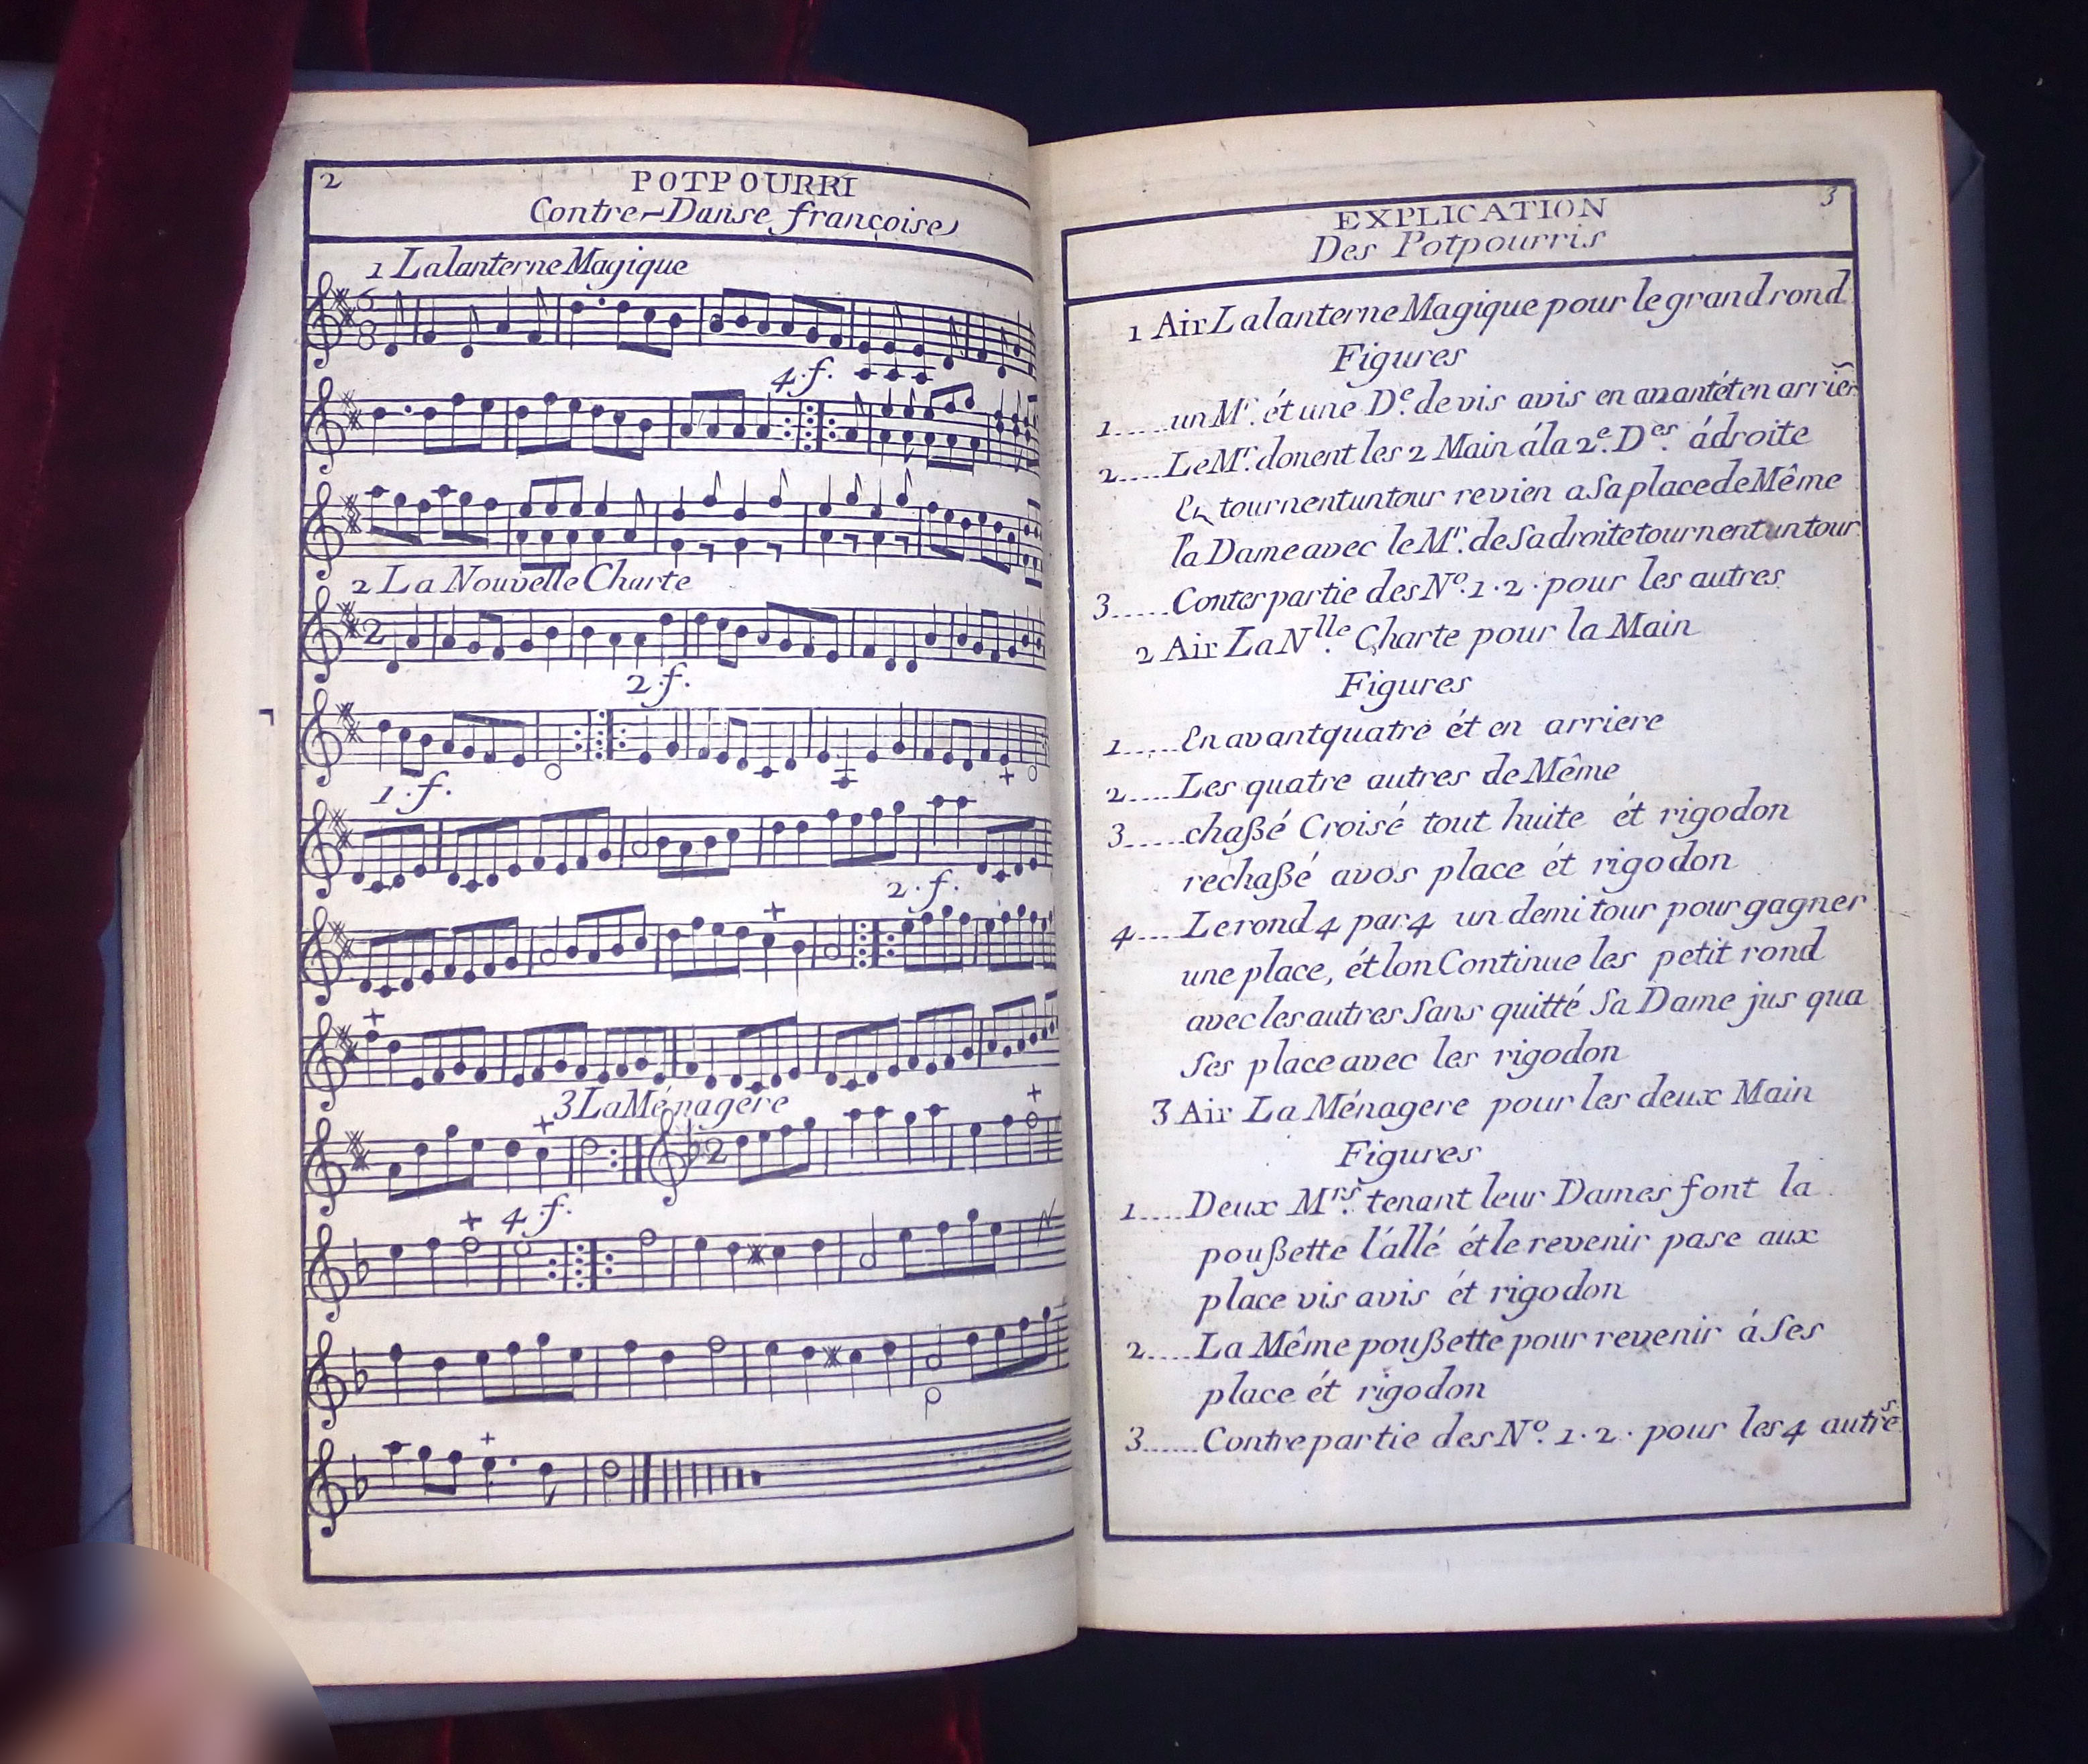 2
POTPOURRI
Contre-Danse françoise
1 Lalanterne Magique
6
8
4.f.
2 La Nouvelle Charte
2
2.f.
1.f.
2.f.
3 La Ménagere
2
4.f.
3
EXPLICATION
Des Potpourris
1 Air Lalanterne Magique pour le grand rond
Figures
1.....un Mr. ét une De. de vis avis en avant ét en arrier
2....Le Mr. donent les 2 Main á la 2e. Des. ádroite
En tournent un tour revien a Sa place de Même
la Dame avec le Mr. de Sa droite tournent un tour
3.....Conterpartie des No. 1.2. pour les autres
2 Air La Nlle. Charte pour la Main
Figures
1.....En avant quatre ét en arriere
2....Les quatre autres de Même
3.....chaßé Croisé tout huite ét rigodon
rechaßé avos place ét rigodon
4....Le rond 4 par 4 un demi tour pour gagner
une place, ét lon Continue les petit rond
avec les autres Sans quitté Sa Dame jus qua
Ses place avec les rigodon
3 Air La Ménagere pour les deux Main
Figures
1....Deux Mrs. tenant leur Dames font la
poußette l'allé ét le revenir pase aux
place vis avis ét rigodon
2....La Même poußette pour revenir á Ses
place ét rigodon
3.....Contrepartie des No. 1.2. pour les 4 autres